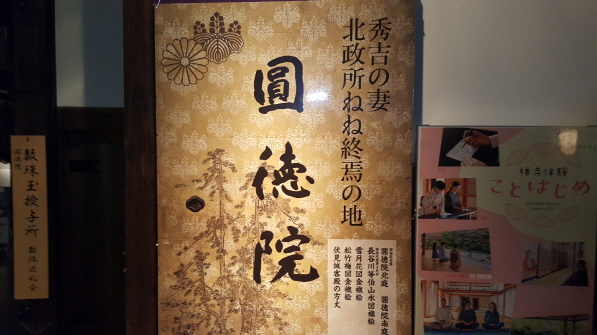 秀吉の妻
北政所ねね終焉の地
圓徳院
圓徳院北庭 圓徳院南庭
長谷川等伯山水図襖絵
雪月花図金襖絵
松竹梅図金襖絵
伏見城客殿の方丈
数珠玉授与所
数珠巡礼会
禅寺体験
ことはじめ